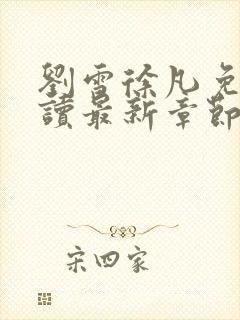 劉雪徐凡免
讀最新章節
宋四家